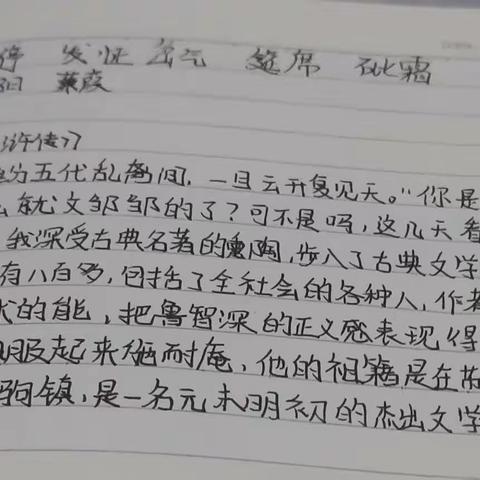 发证 岔气 筵席 砒霜
蒹葭
浒传》
纷五代乱离间，一旦云开复见天。"你是
么就文邹邹的了？可不是吗，这几天看
我深受古典名著的熏陶，步入了古典文学
有八百多，包括了全社会的各种人，作者
的能，把鲁智深的正义感表现得
服起来施耐庵，他的祖籍是在
驹镇，是一名元末明初的杰出文学